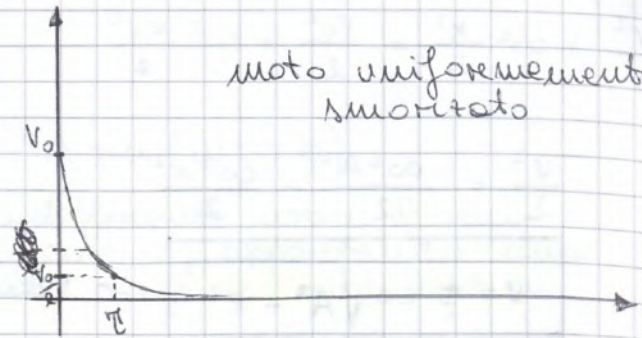 moto uniformement
smorzato
V₀
V₀
τ